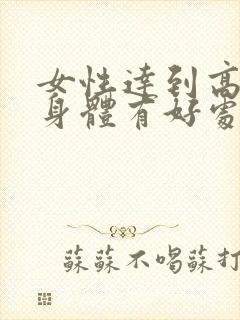 女性達到高
身體有好處
蘇蘇不喝蘇打